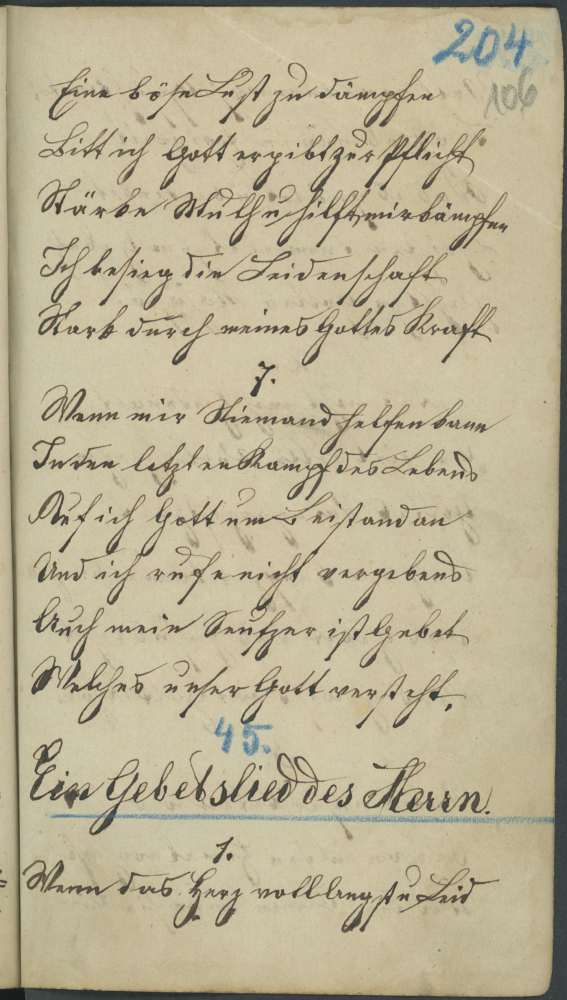 204
106
Eine böse Lust zu dämpfen
Bitt ich Gott zur Pflicht
Stärke Muth u hilft mir kämpfen
Ich besieg die Leidenschaft
Stark durch meines Gottes Kraft
7.
Wenn mir Niemand helfen kann
In den letzten Kampf des Lebens
Ruf ich Gott um Beistand an
Und ich rufe nicht vergebens
Auch mein Seufzer ist Gebet
Welches unser Gott versteht.
45.
Ein Gebetslied des Herrn.
1.
Wenn das Herz voll Angst u Leid